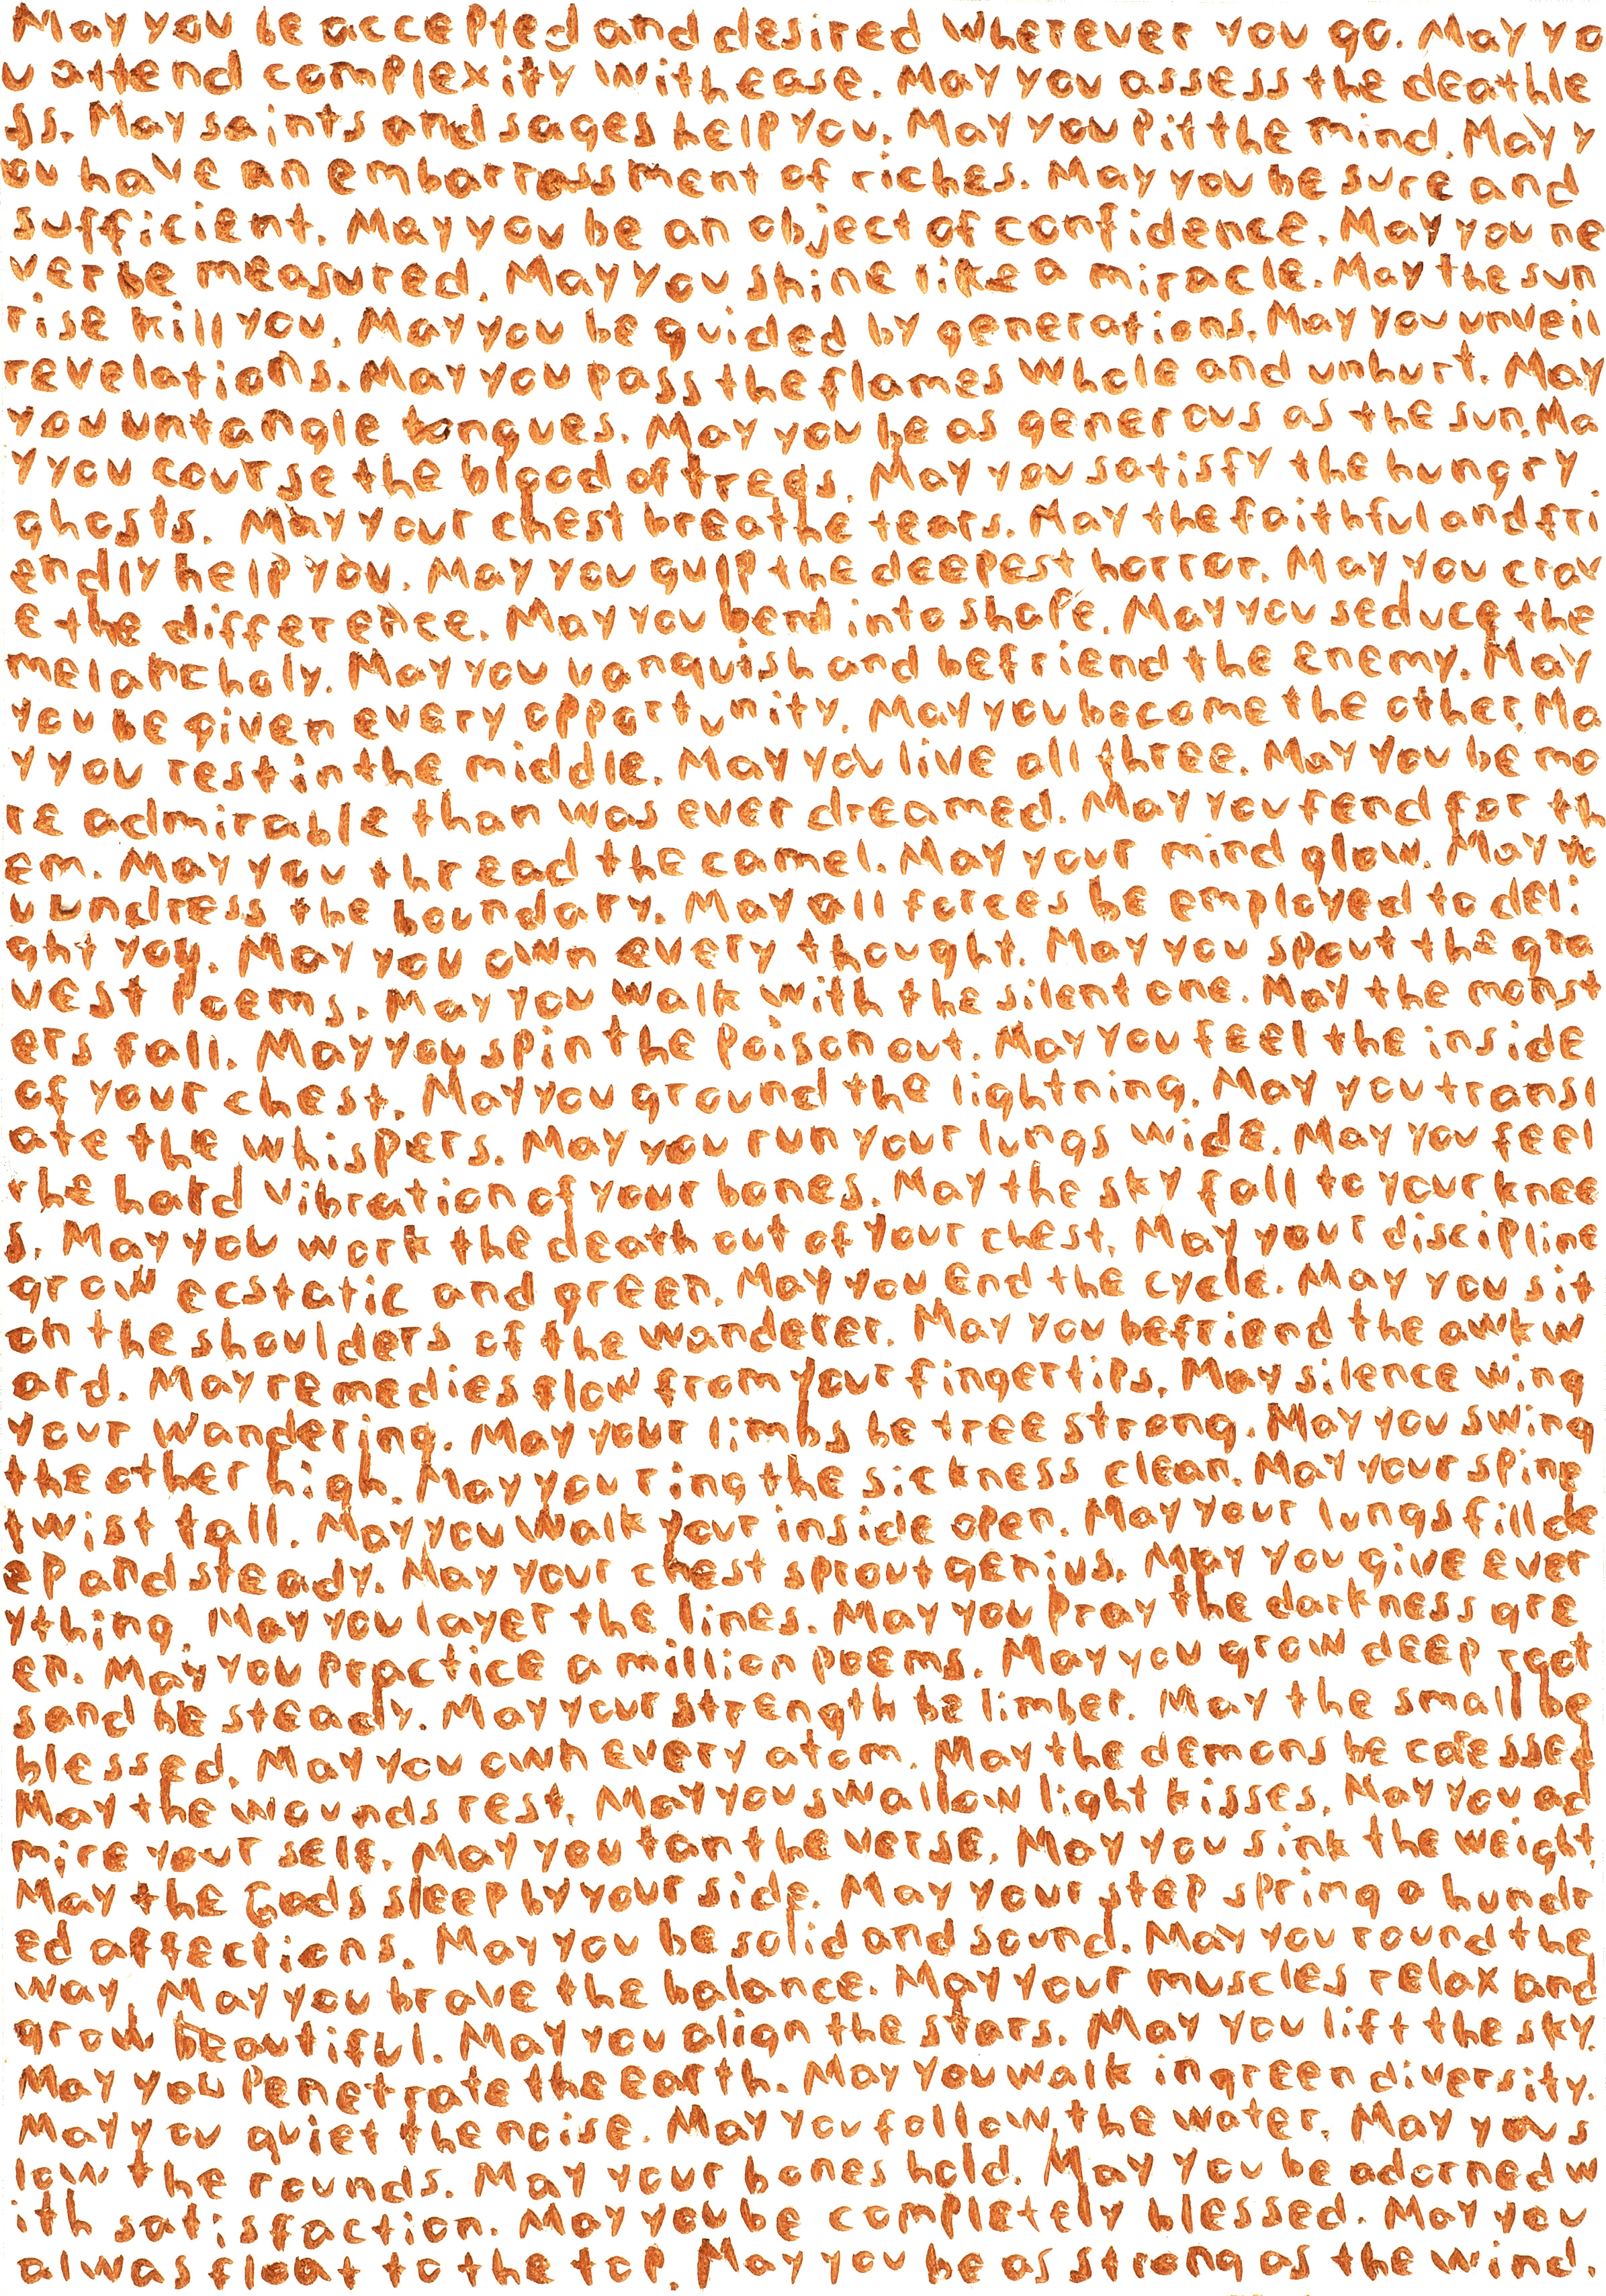 May you be accepted and desired wherever you go. May yo
u attend complexity with ease. May you assess the deathle
ss. May saints and sages help you. May you pit the mind. May y
ou have an embarrassment of riches. May you be sure and
sufficient. May you be an object of confidence. May you ne
ver be measured. May you shine like a miracle. May the sun
rise kill you. May you be guided by generations. May you unveil
revelations. May you pass the flames whole and unhurt. May
you untangle tongues. May you be as generous as the sun. Ma
y you course the blood of trees. May you satisfy the hungry
ghosts. May your chest breathe tears. May the faithful and fri
endly help you. May you gulp the deepest horror. May you crav
e the difference. May you bend into shape. May you seduce the
melancholy. May you vanquish and befriend the enemy. May
you be given every opportunity. May you become the other. Ma
y you rest in the middle. May you live all three. May you be mo
re admirable than was ever dreamed. May you fend for th
em. May you thread the camel. May your mind glow. May yo
u undress the boundary. May all forces be employed to deli
ght you. May you own every thought. May you spout the gra
vest poems. May you walk with the silent one. May the monst
ers fall. May you spin the poison out. May you feel the inside
of your chest. May you ground the lightning. May you transl
ate the whispers. May you run your lungs wide. May you feel
the hard vibration of your bones. May the sky fall to your knee
s. May you work the death out of your chest. May your discipline
grow ecstatic and green. May you end the cycle. May you sit
on the shoulders of the wanderer. May you befriend the awkw
ard. May remedies flow from your fingertips. May silence wing
your wandering. May your limbs be tree strong. May you swing
the other high. May you ring the sickness clean. May your spine
twist tall. May you walk your inside open. May your lungs fill de
ep and steady. May your chest sprout genius. May you give ever
ything. May you layer the lines. May you pray the darkness gre
en. May you practice a million poems. May you grow deep root
s and be steady. May your strength be limber. May the small be
blessed. May you own every atom. May the demons be caressed
May the wounds rest. May you swallow light kisses. May you ad
mire your self. May you tan the verse. May you sink the weight.
May the Gods sleep by your side. May your step spring a hundr
ed affections. May you be solid and sound. May you round the
way. May you brave the balance. May your muscles relax and
grow beautiful. May you align the stars. May you lift the sky.
May you penetrate the earth. May you walk in green diversity.
May you quiet the noise. May you follow the water. May you s
low the rounds. May your bones hold. May you be adorned w
ith satisfaction. May you be completely blessed. May you
alwas float to the top. May you be as strong as the wind.